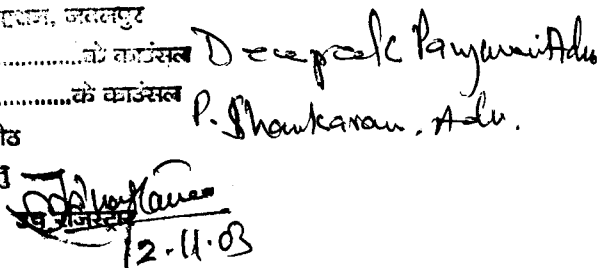 जबलपुर
..............के काउंसल Deepak Panjwani Adv.
.............के काउंसल P. Shankaran. Adv.
उप रजिस्ट्रार
12.11.03